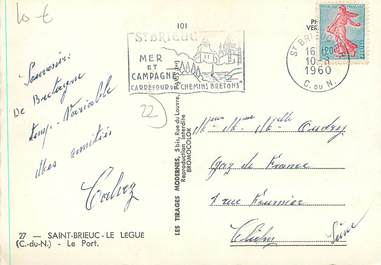 10 €
101
ST BRIEUC
MER
ET
CAMPAGNE
CARREFOUR DES CHEMINS BRETONS
ST BRIEUC
16 H
10-8
1960
C. DU N.
22
Souvenir
De Bretagne
temp. Variable
Mes amitiés
27 - SAINT-BRIEUC - LE LEGUE
(C.-du-N.) - Le Port.
LES TIRAGES MODERNES, 5 bis, Rue du Louvre, PARIS
Reproduction Interdite
BROMOCOLOR
Gaz de France
rue Fournier
Clichy
Seine